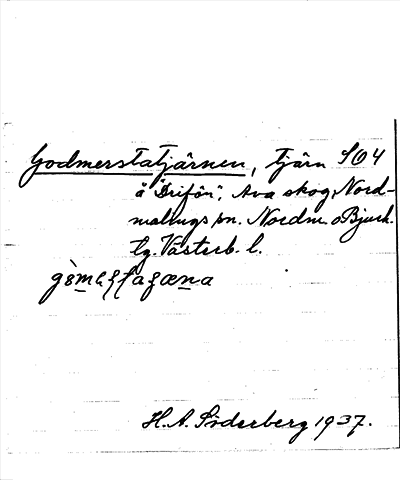 Godmerstatjärnen, tjärn S04
å "Drifön", Ava skog, Nord-
malings sn. Nordm. o Bjurh.
tg. Västerb. l.
H. A. Söderberg 1937.